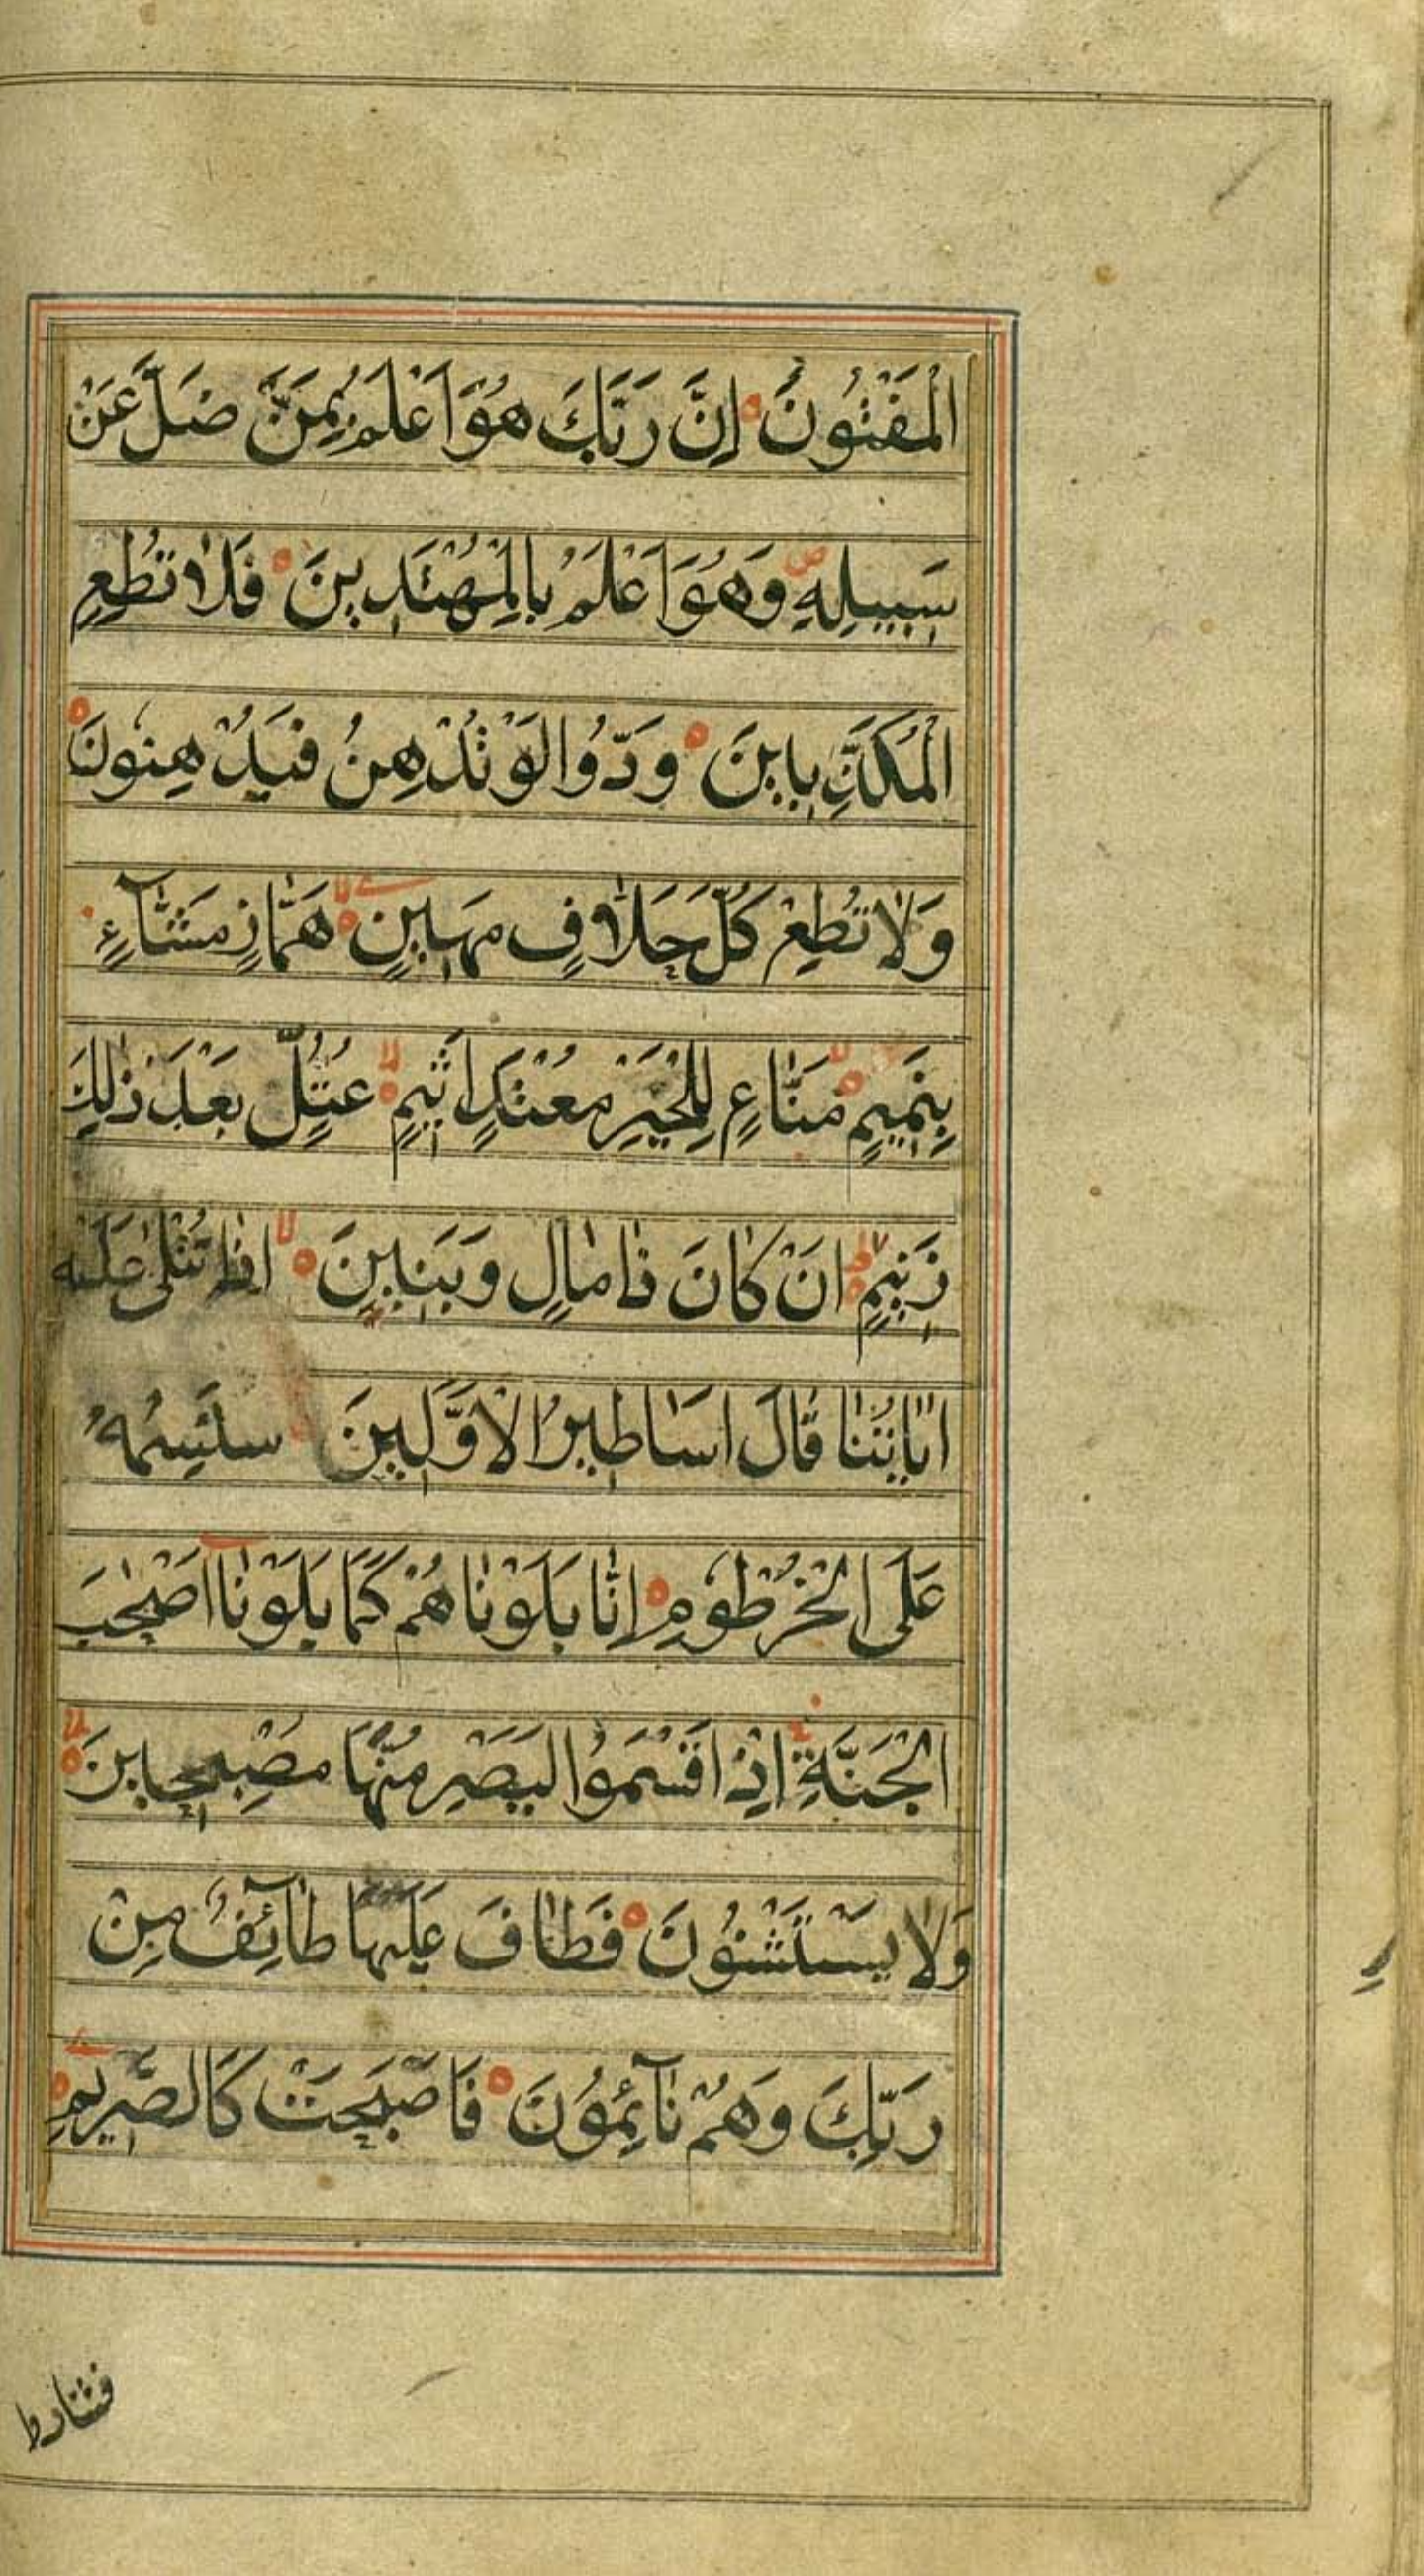 الْمَفْتُونُ اِنَّ رَبَّكَ هُوَ اَعْلَمُ بِمَنْ ضَلَّ عَنْ
سَبِيلِهِ وَهُوَ اَعْلَمُ بِالْمُهْتَدِينَ فَلَا تُطِعِ
الْمُكَذِّبِينَ وَدُّوا لَوْ تُدْهِنُ فَيُدْهِنُونَ
وَلَا تُطِعْ كُلَّ حَلَّافٍ مَهِينٍ هَمَّازٍ مَشَّآءٍ
بِنَمِيمٍ مَنَّاعٍ لِلْخَيْرِ مُعْتَدٍ اَثِيمٍ عُتُلٍّ بَعْدَ ذٰلِكَ
زَنِيمٍ اَنْ كَانَ ذَا مَالٍ وَبَنِينَ اِذَا تُتْلٰى عَلَيْهِ
اٰيَاتُنَا قَالَ اَسَاطِيرُ الْاَوَّلِينَ سَنَسِمُهُ
عَلَى الْخُرْطُومِ اِنَّا بَلَوْنَاهُمْ كَمَا بَلَوْنَا اَصْحٰبَ
الْجَنَّةِ اِذْ اَقْسَمُوا لَيَصْرِمُنَّهَا مُصْبِحِينَ
وَلَا يَسْتَثْنُونَ فَطَافَ عَلَيْهَا طَآئِفٌ مِنْ
رَبِّكَ وَهُمْ نَآئِمُونَ فَاَصْبَحَتْ كَالصَّرِيمِ
فتنادوا